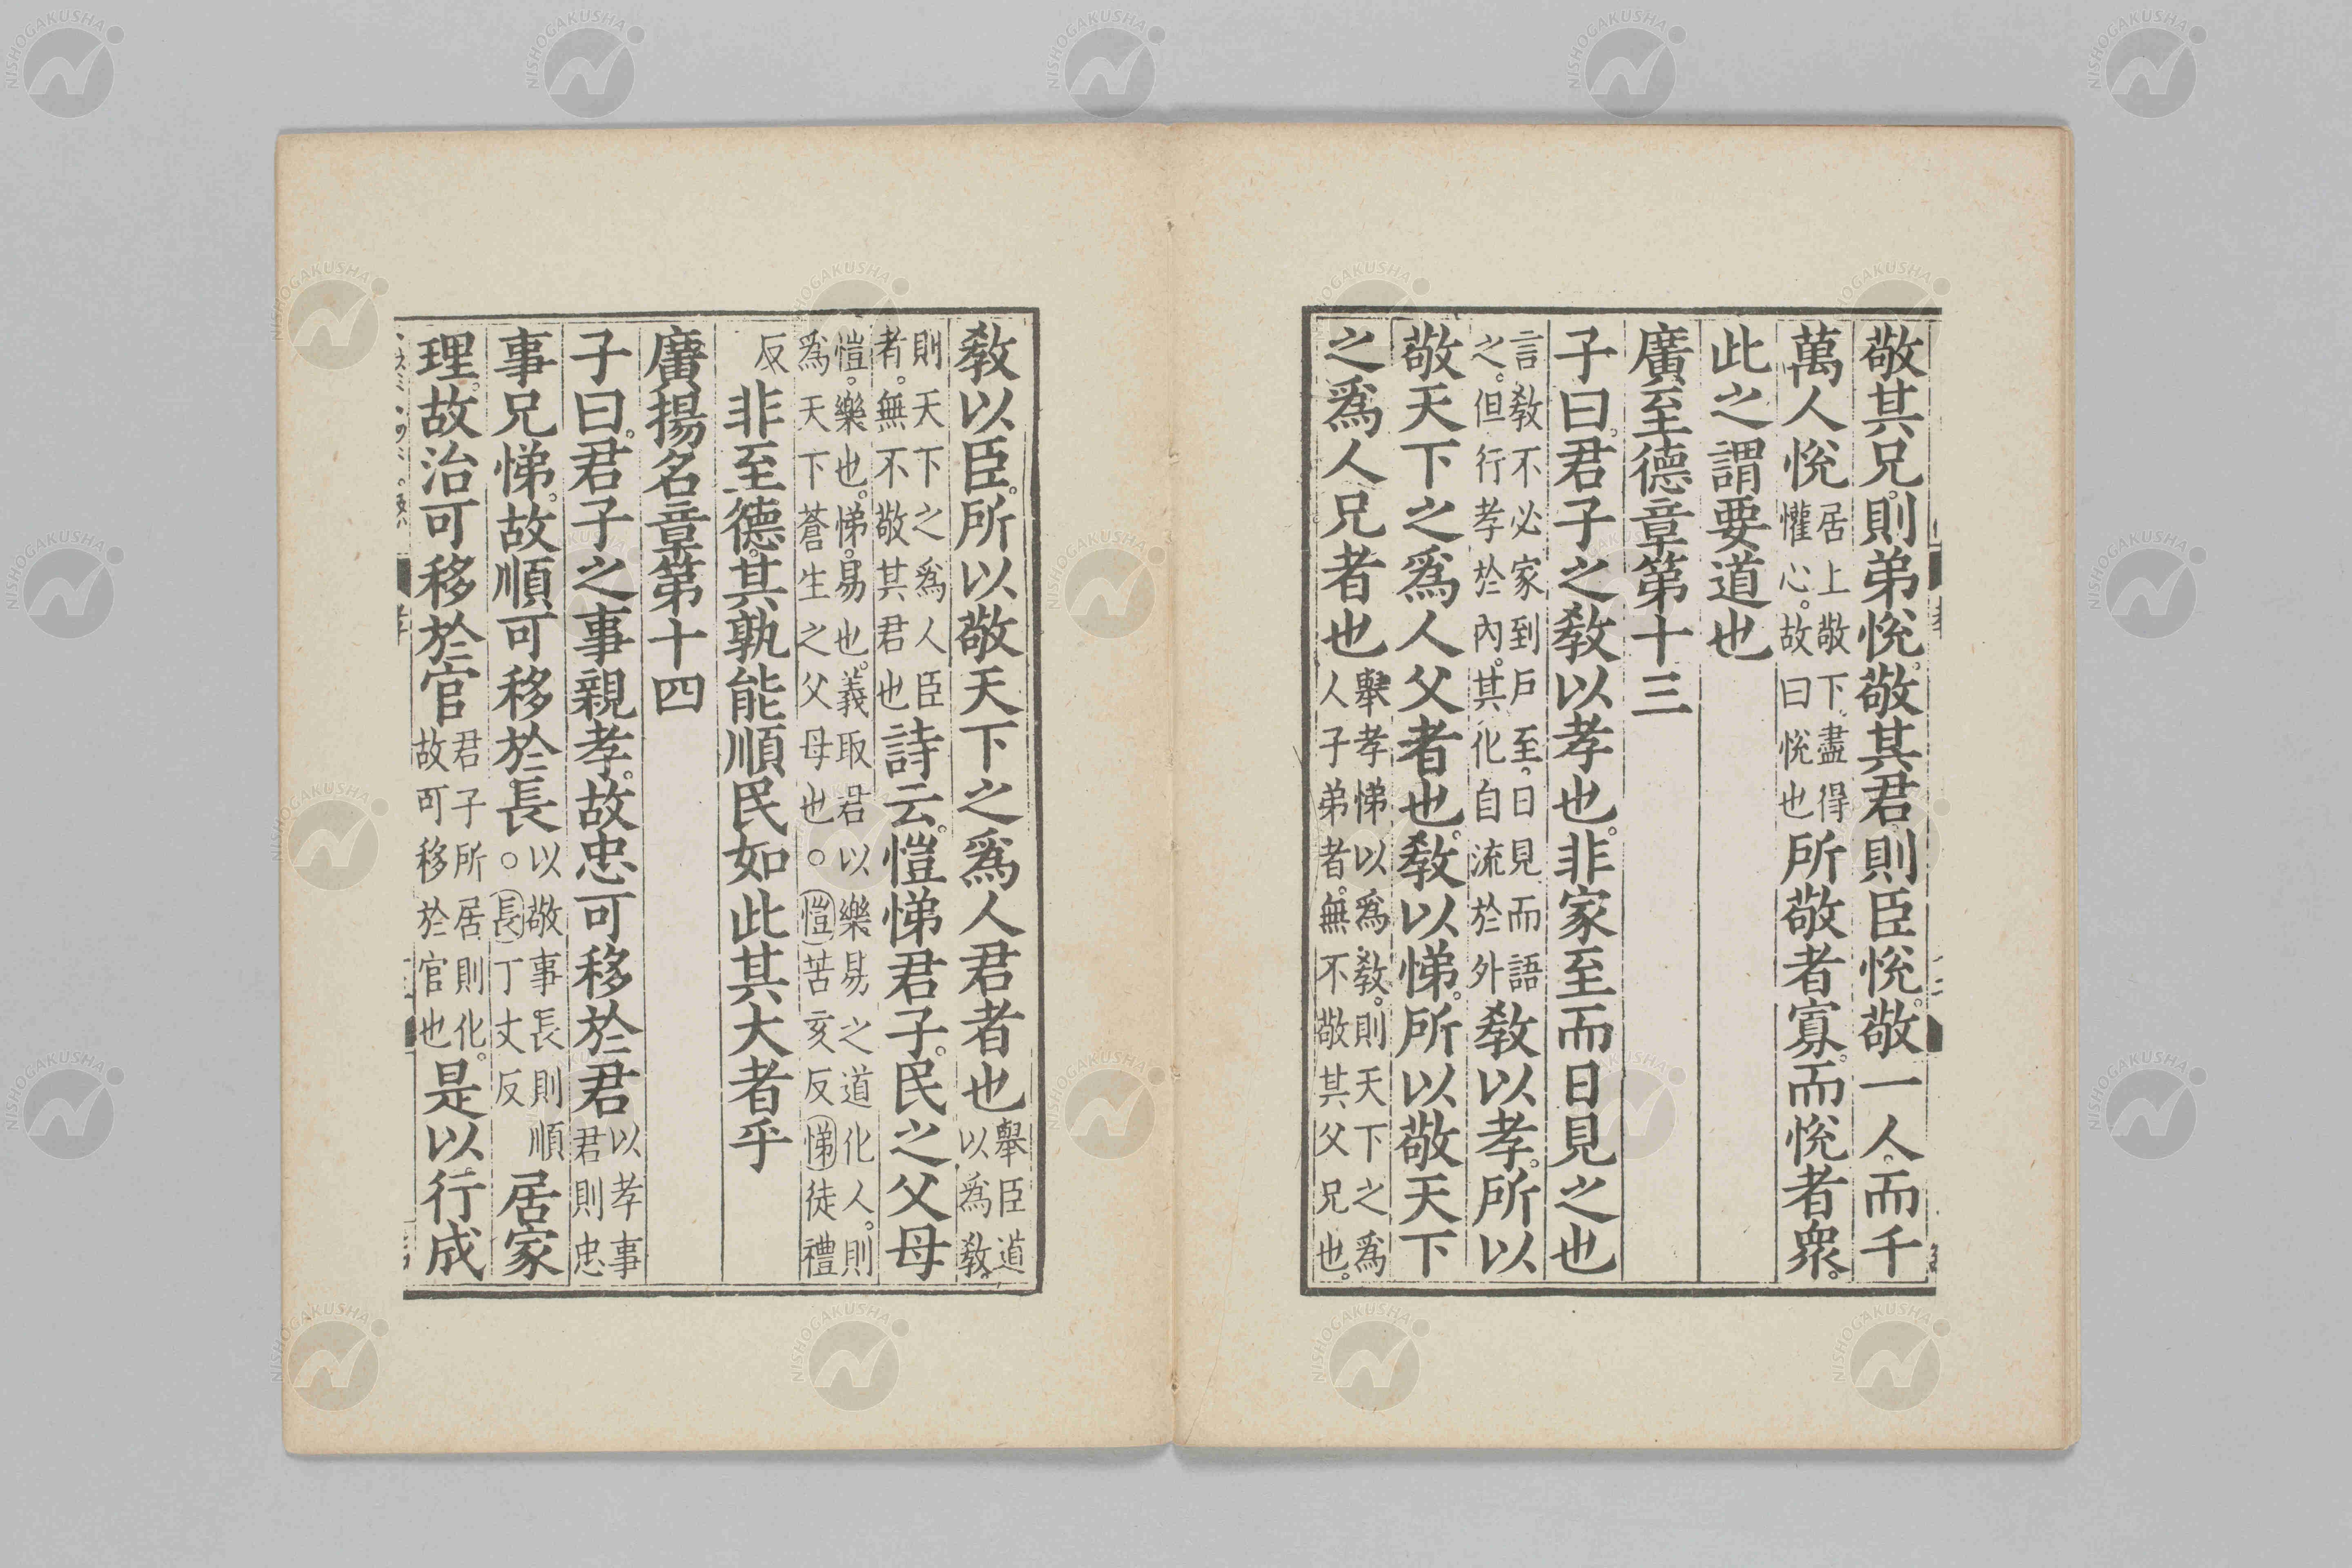 敬其兄則弟悅敬其君則臣悅敬一人而千
萬人悅居上敬下盡得懽心故曰悅也所敬者寡而悅者衆
此之謂要道也
廣至德章第十三
子曰君子之教以孝也非家至而日見之也
言教不必家到戶至日見而語之但行孝於內其化自流於外教以孝所以
敬天下之爲人父者也教以悌所以敬天下
之爲人兄者也舉孝悌以爲教則天下之爲人子弟者無不敬其父兄也
教以臣所以敬天下之爲人君者也舉臣道以爲教
則天下之爲人臣者無不敬其君也詩云愷悌君子民之父母
愷樂也悌易也義取君以樂易之道化人則爲天下蒼生之父母也○愷苦亥反悌徒禮
反非至德其孰能順民如此其大者乎
廣揚名章第十四
子曰君子之事親孝故忠可移於君以孝事君則忠
事兄悌故順可移於長以敬事長則順○長丁丈反居家
理故治可移於官君子所居則化故可移於官也是以行成
NISHOGAKUSHA